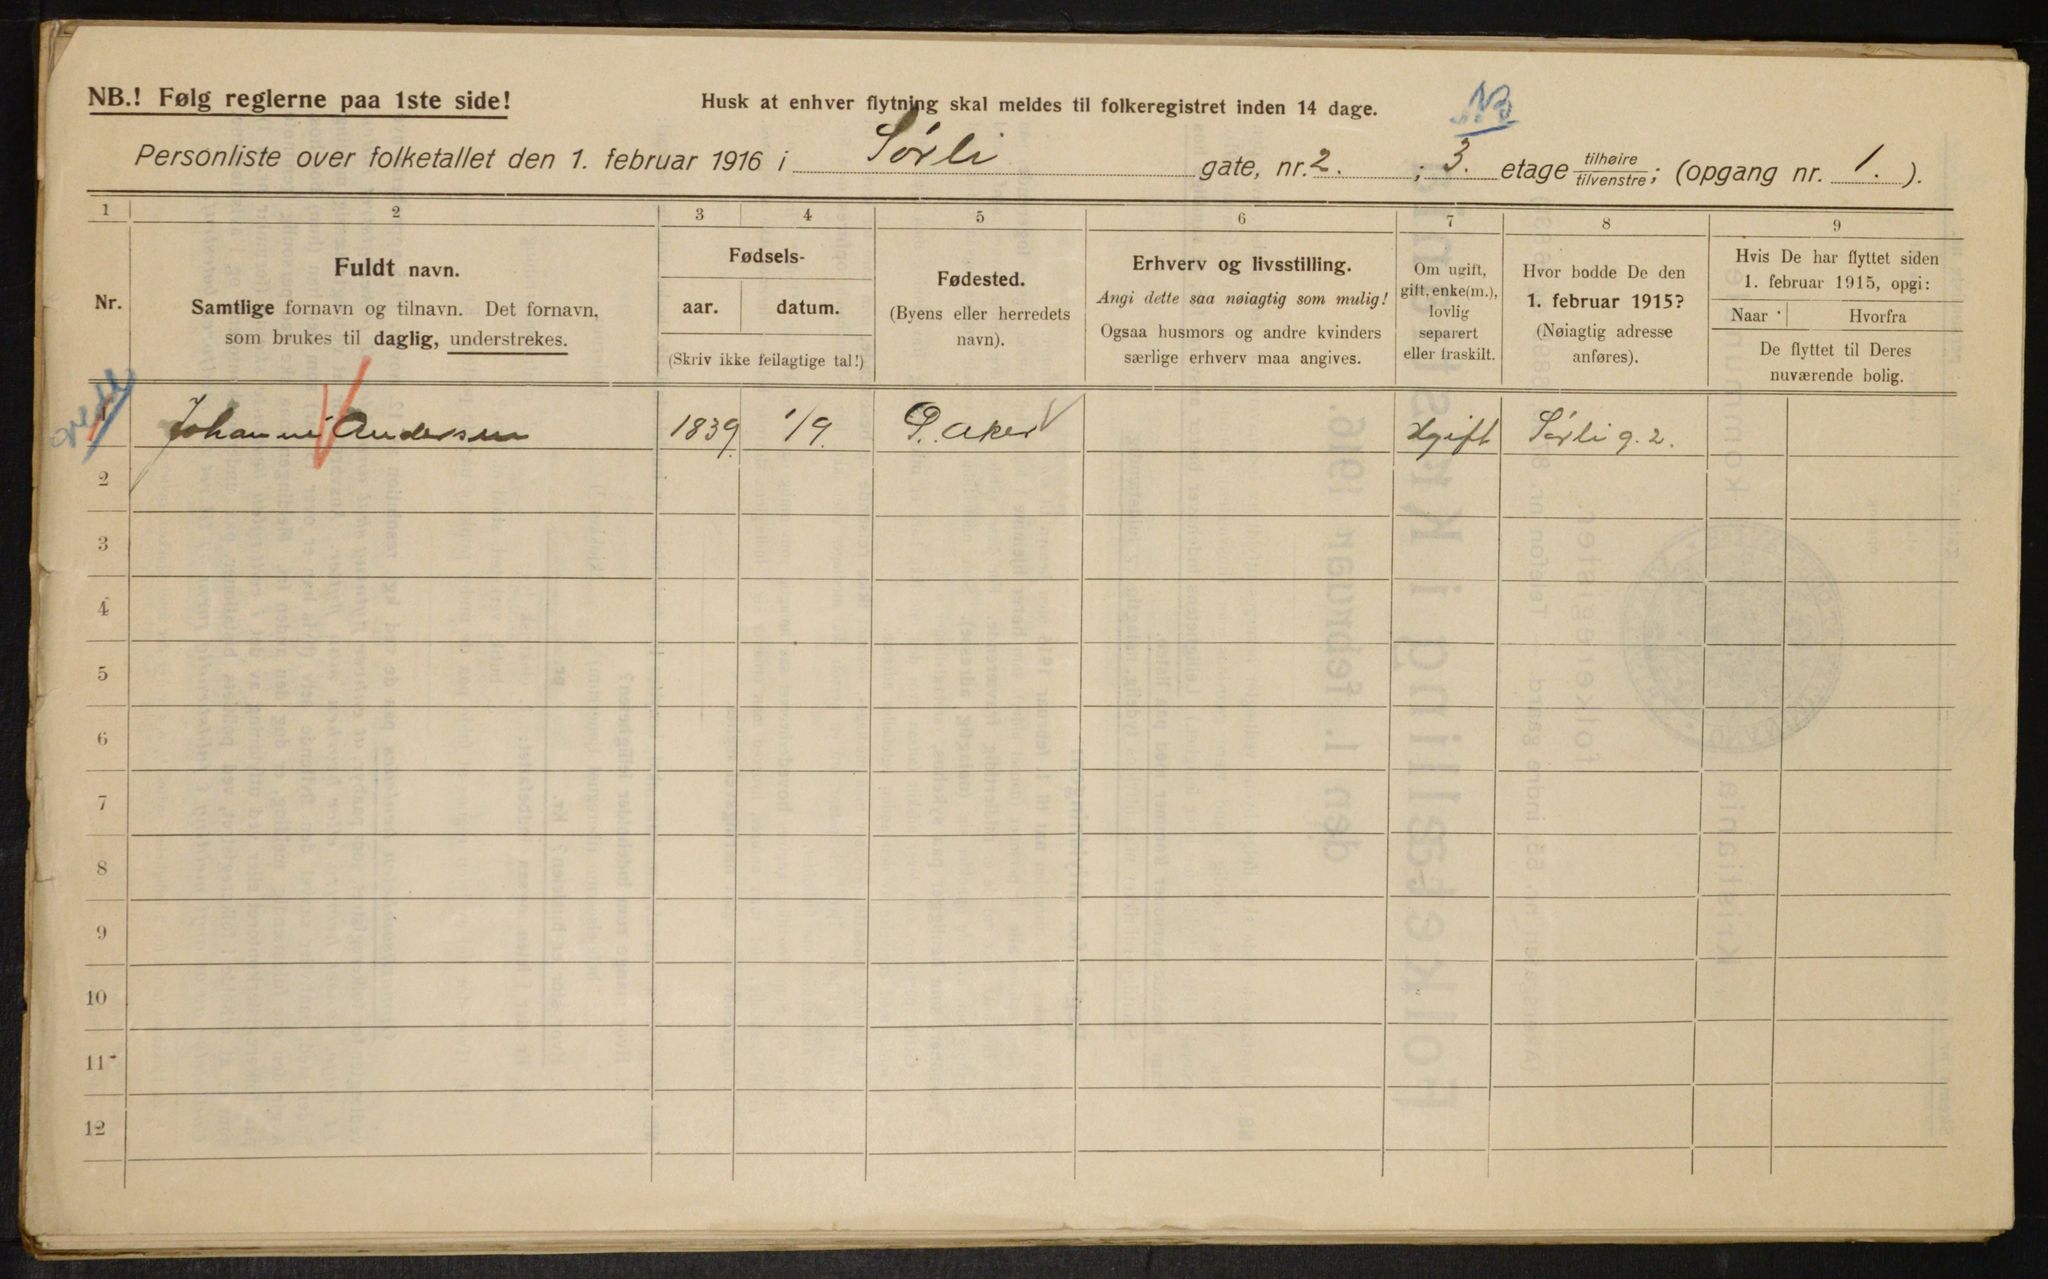 NB.! Følg reglerne paa 1ste side!
Husk at enhver flytning skal meldes til folkeregistret inden 14 dage.
NB
Personliste over folketallet den 1. februar 1916 i Sørli gate, nr. 2. ; 3. etage tilhøire tilvenstre; (opgang nr. 1. ).
1 2 3 4 5 6 7 8 9
Nr.
Fuldt navn.
Samtlige fornavn og tilnavn. Det fornavn,
som brukes til daglig, understrekes.
Fødsels-
aar. datum.
(Skriv ikke feilagtige tal!)
Fødested.
(Byens eller herredets
navn).
Erhverv og livsstilling.
Angi dette saa nøiagtig som mulig!
Ogsaa husmors og andre kvinders
særlige erhverv maa angives.
Om ugift,
gift, enke(m.),
lovlig
separert
eller fraskilt.
Hvor bodde De den
1. februar 1915?
(Nøiagtig adresse
anføres).
Hvis De har flyttet siden
1. februar 1915, opgi:
Naar Hvorfra
De flyttet til Deres
nuværende bolig.
1 Andersen 1839 1/9. Aker Ugift Sørli g. 2.
2
3
4
5
6
7
8
9
10
11
12